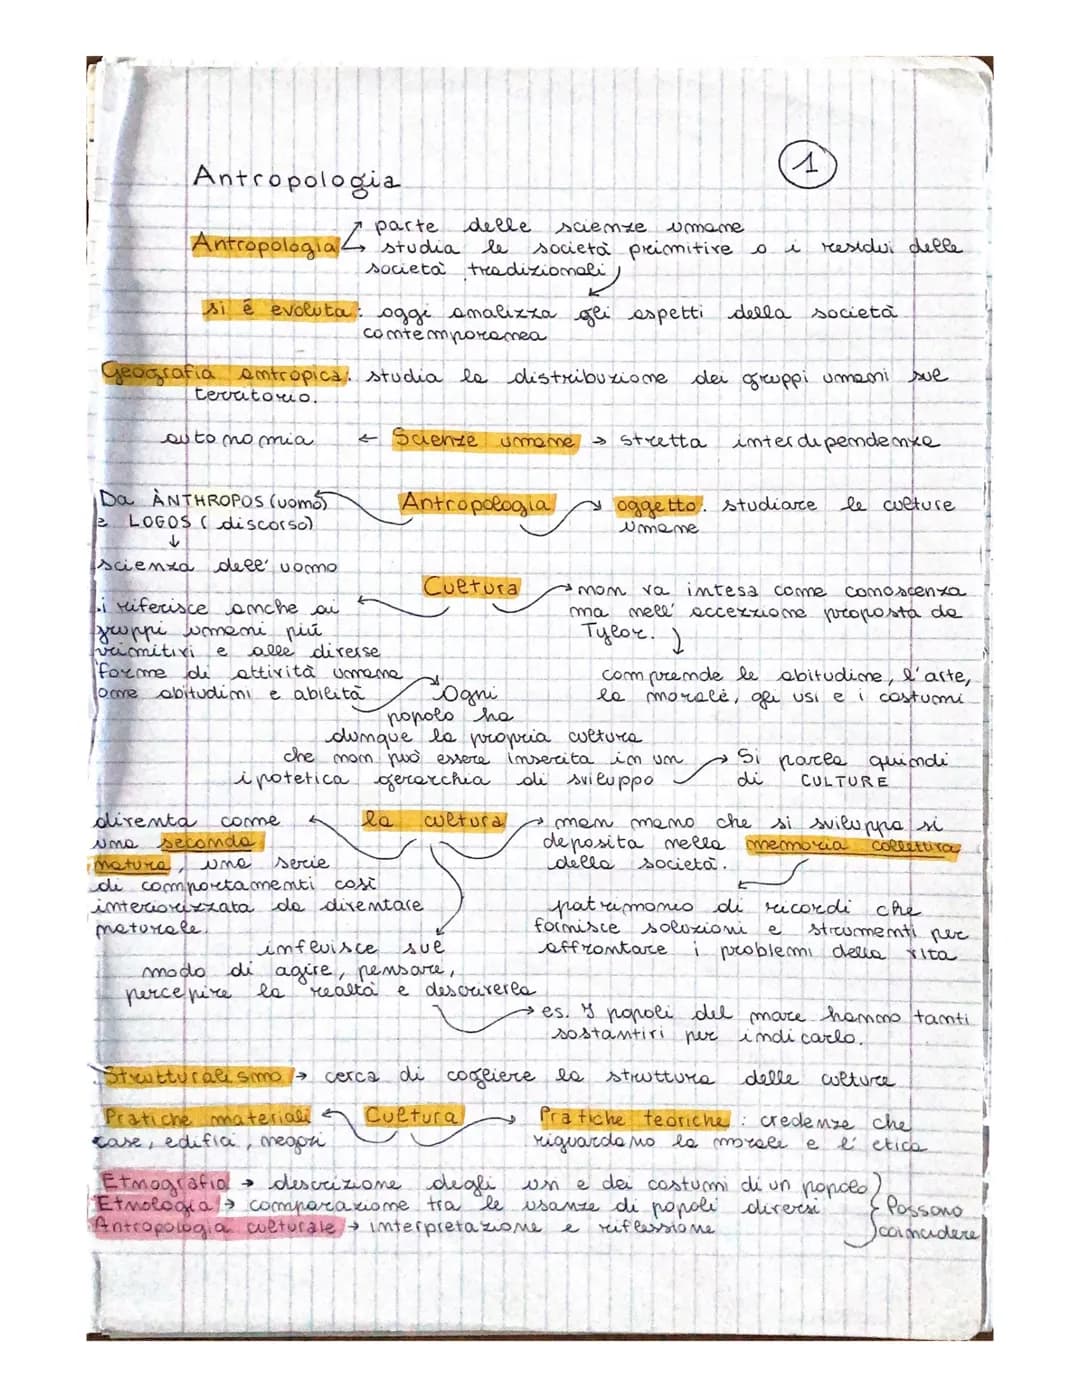 1
Antropologia
parte delle scienze umane
Antropologia studia le società primitive o i residui delle
società tradizionali
si è evoluta: oggi analizza gli aspetti della società
contemporanea
Geografia antropica: studia la distribuzione dei gruppi umani sul
territorio.
autonomia ← Scienze umane → stretta interdipendenza
Da ÀNTHROPOS (uomo) Antropologia oggetto: studiare le culture
e LOGOS (discorso) umane
↓
scienza dell'uomo
Cultura non va intesa come conoscenza
si riferisce anche ai ma nell'accezzione proposta da
gruppi umani più Tylor.
primitivi e alle diverse
forme di attività umana comprende le abitudine, l'arte,
come abitudini e abilità Ogni la morale, gli usi e i costumi
popolo ha
dunque la propria cultura
che non può essere inserita in un Si parla quindi
ipotetica gerarchia di sviluppo di CULTURE
diventa come la cultura man mano che si sviluppa si
una seconda deposita nella memoria collettiva
natura, una serie della società.
di comportamenti così
interiorizzata da diventare patrimonio di ricordi che
naturale. fornisce soluzioni e strumenti per
influisce sul affrontare i problemi della vita
modo di agire, pensare,
percepire la realtà e descriverla
es. I popoli del mare hanno tanti
sostantivi per indicarlo.
Strutturalismo → cerca di cogliere la struttura delle culture
Pratiche materiali Cultura Pratiche teoriche: credenze che
case, edifici, negozi riguardano la morale e l'etica
Etnografia → descrizione degli usi e dei costumi di un popolo
Etnologia → comparazione tra le usanze di popoli diversi Possono
Antropologia culturale → interpretazione e riflessione coincidere